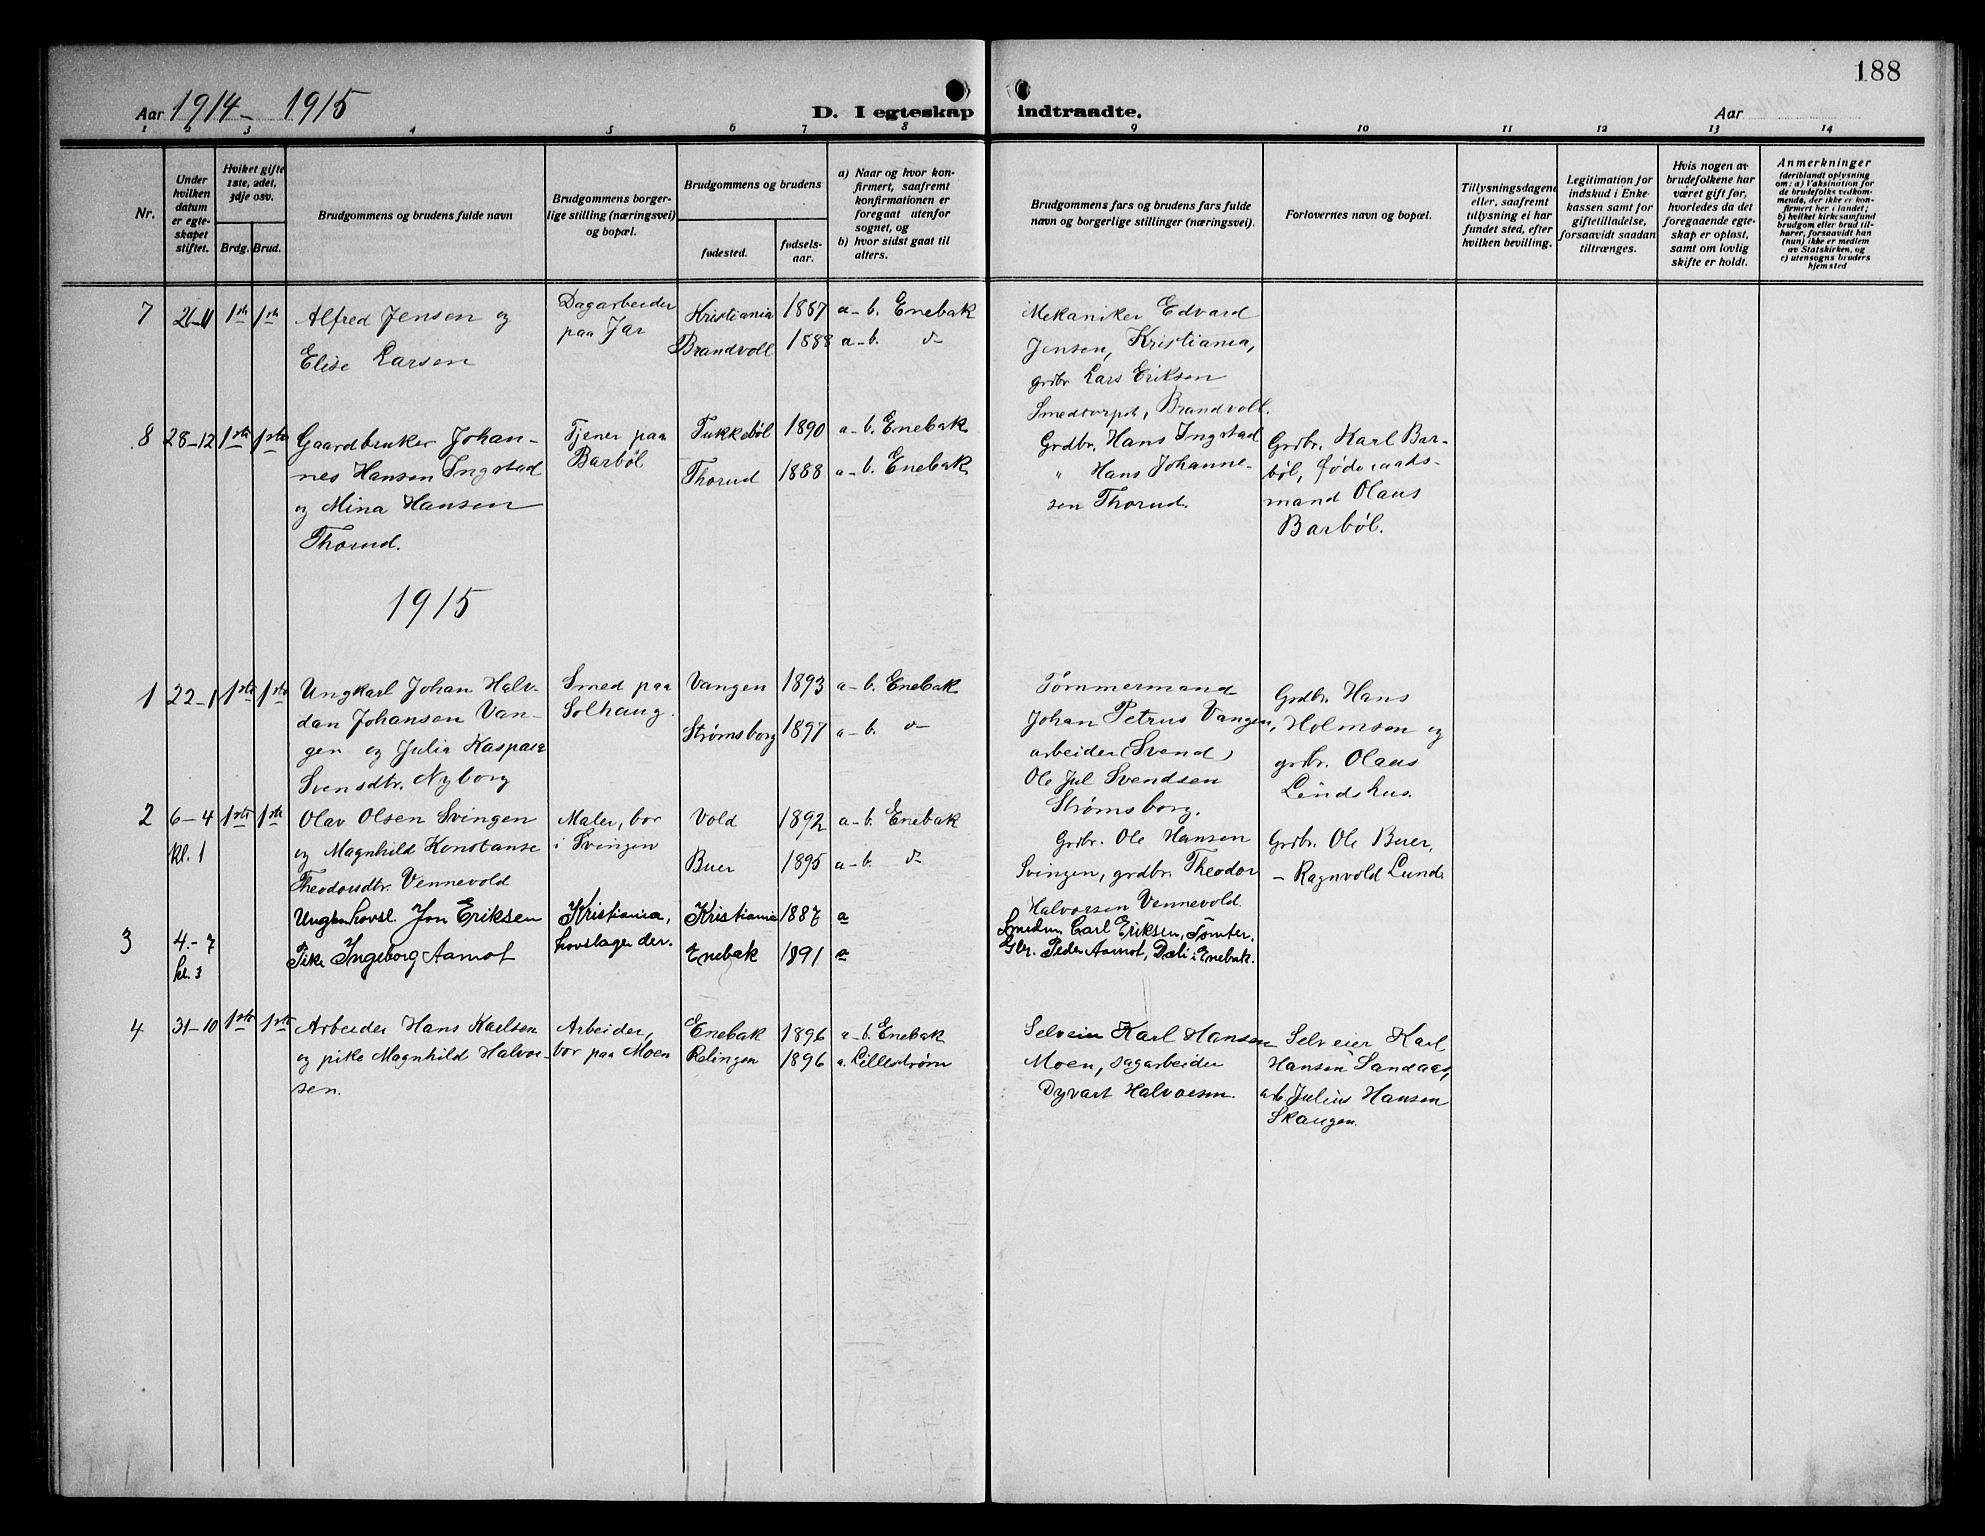 188
Aar 1914 – 1915
D. I egteskap indtraadte.
Aar
1 2 3 4 5 6 7 8 9 10 11 12 13 14
Nr.
Under hvilken datum er egteskapet stiftet.
Hvilket gifte 1ste, 2det, 3dje osv.
Brdg. Brud.
Brudgommens og brudens fulde navn
Brudgommens borgerlige stilling (næringsvei) og bopæl.
Brudgommens og brudens
fødested.
fødselsaar.
a) Naar og hvor konfirmert, saafremt konfirmationen er foregaat utenfor sognet, og
b) hvor sidst gaat til alters.
Brudgommens fars og brudens fars fulde navn og borgerlige stillinger (næringsvei).
Forlovernes navn og bopæl.
Tillysningsdagene eller, saafremt tillysning ei har fundet sted, efter hvilken bevilling.
Legitimation for indskud i Enkekassen samt for giftetilladelse, forsaavidt saadan tiltrænges.
Hvis nogen av brudefolkene har været gift før, hvorledes da det foregaaende egteskap er opløst, samt om lovlig skifte er holdt.
Anmerkninger
(deriblandt oplysning om: a) Vaksination for de brudefolks vedkommende, der ikke er konfirmert her i landet; b) hvilket kirkesamfund brudgom eller brud tilhører, forsaavidt han (hun) ikke er medlem av Statskirken, og c) utensogns bruders hjemsted
7 21–11 1ste 1ste
Alfred Jensen og
Elise Larsen
Dagarbeider
paa Jar
Kristiania 1887 a–b. Enebak
Brandvoll 1888 a–b. do
Mekaniker Edvard
Jensen, Kristiania,
grdbr Lars Eriksen
Smedtorpet, Brandvoll.
8 28–12 1ste 1ste
Gaardbruker Johan–
nes Hansen Ingstad
og Mina Hansen
Thorud.
Tjener paa
Barbøl
Tukkebøl 1890 a–b. Enebak
Thorud 1888 a–b. Enebak
Grdbr. Hans Ingstad
" Hans Johanne–
sen Thorud.
Grdbr. Karl Bar–
bøl, føderaads–
mand Olaus
Barbøl.
1915
1 22–1 1ste 1ste
Ungkarl Johan Halv–
dan Johansen Van–
gen og Julia Kaspara
Svensdtr. Nyborg
Smed paa
Solhaug.
Vangen 1893 a–b. Enebak
Strømsborg 1897 a–b. do
Tømmermand
Johan Petrus Vangen,
arbeider (Svend)
Ole Jul Svendsen
Strømsborg.
Grdbr. Hans
Holmsen og
grdbr. Olaus
Lindshus.
2 6–4 kl. 1 1ste 1ste
Olav Olsen Svingen
og Magnhild Konstanse
Theodorsdtr. Vennevold
Maler, bor
i Svingen
Vold 1892 a–b. Enebak
Buer 1895 a–b. do
Grdbr. Ole Hansen
Svingen, grdbr. Theodor
Halvorsen Vennevold.
Grdbr. Ole Buer,
– Ragnvold Lunde
3 4.–7 kl. 3
Ungkar hovsl. Jon Eriksen
Pike Ingeborg Aamot
Kristiania,
hovslager der.
Kristiania 1887 a
Enebak 1891 a
Smedm. Carl Eriksen, Tomter.
Gbr. Peder Aamot, Dali i Enebak.
4 31–10 1ste 1ste
Arbeider Hans Karlsen
og pike Magnhild Halvor–
sen.
Arbeider,
bor paa Moen
Enebak 1896 a–b. Enebak
Rælingen 1896 a. Lillestrøm
Selveier Karl Hansen
Moen, sagarbeider
Dyvart Halvorsen.
Selveier Karl
Hansen Sandaas,
arb. Julius Hansen
Skaugen.